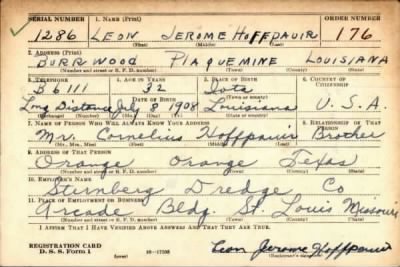 SERIAL NUMBER 1. NAME (Print) ORDER NUMBER
1286 LEON JEROME HOFFPAUIR 176
(First) (Middle) (Last)
2. ADDRESS (Print)
BURRWOOD PLAQUEMINE LOUISIANA
(Number and street or R. F. D. number) (Town) (County) (State)
3. TELEPHONE 4. AGE IN YEARS 5. PLACE OF BIRTH 6. COUNTRY OF CITIZENSHIP
B 6111 32 Iota
DATE OF BIRTH
Long Distance July 8 1908 Louisiana U.S.A.
(Exchange) (Number) (Mo.) (Day) (Yr.) (State or country)
7. NAME OF PERSON WHO WILL ALWAYS KNOW YOUR ADDRESS 8. RELATIONSHIP OF THAT PERSON
Mr. Cornelius Hoffpauir Brother
(Mr., Mrs., Miss) (First) (Middle) (Last)
9. ADDRESS OF THAT PERSON
Orange Orange Texas
(Number and street or R. F. D. number) (Town) (County) (State)
10. EMPLOYER'S NAME
Sternberg Dredge Co
11. PLACE OF EMPLOYMENT OR BUSINESS
Arcade Bldg. St. Louis Missouri
(Number and street or R. F. D. number) (Town) (County) (State)
I AFFIRM THAT I HAVE VERIFIED ABOVE ANSWERS AND THAT THEY ARE TRUE.
REGISTRATION CARD
D. S. S. Form 1 16-17105 Leon Jerome Hoffpauir
(Registrant's signature)